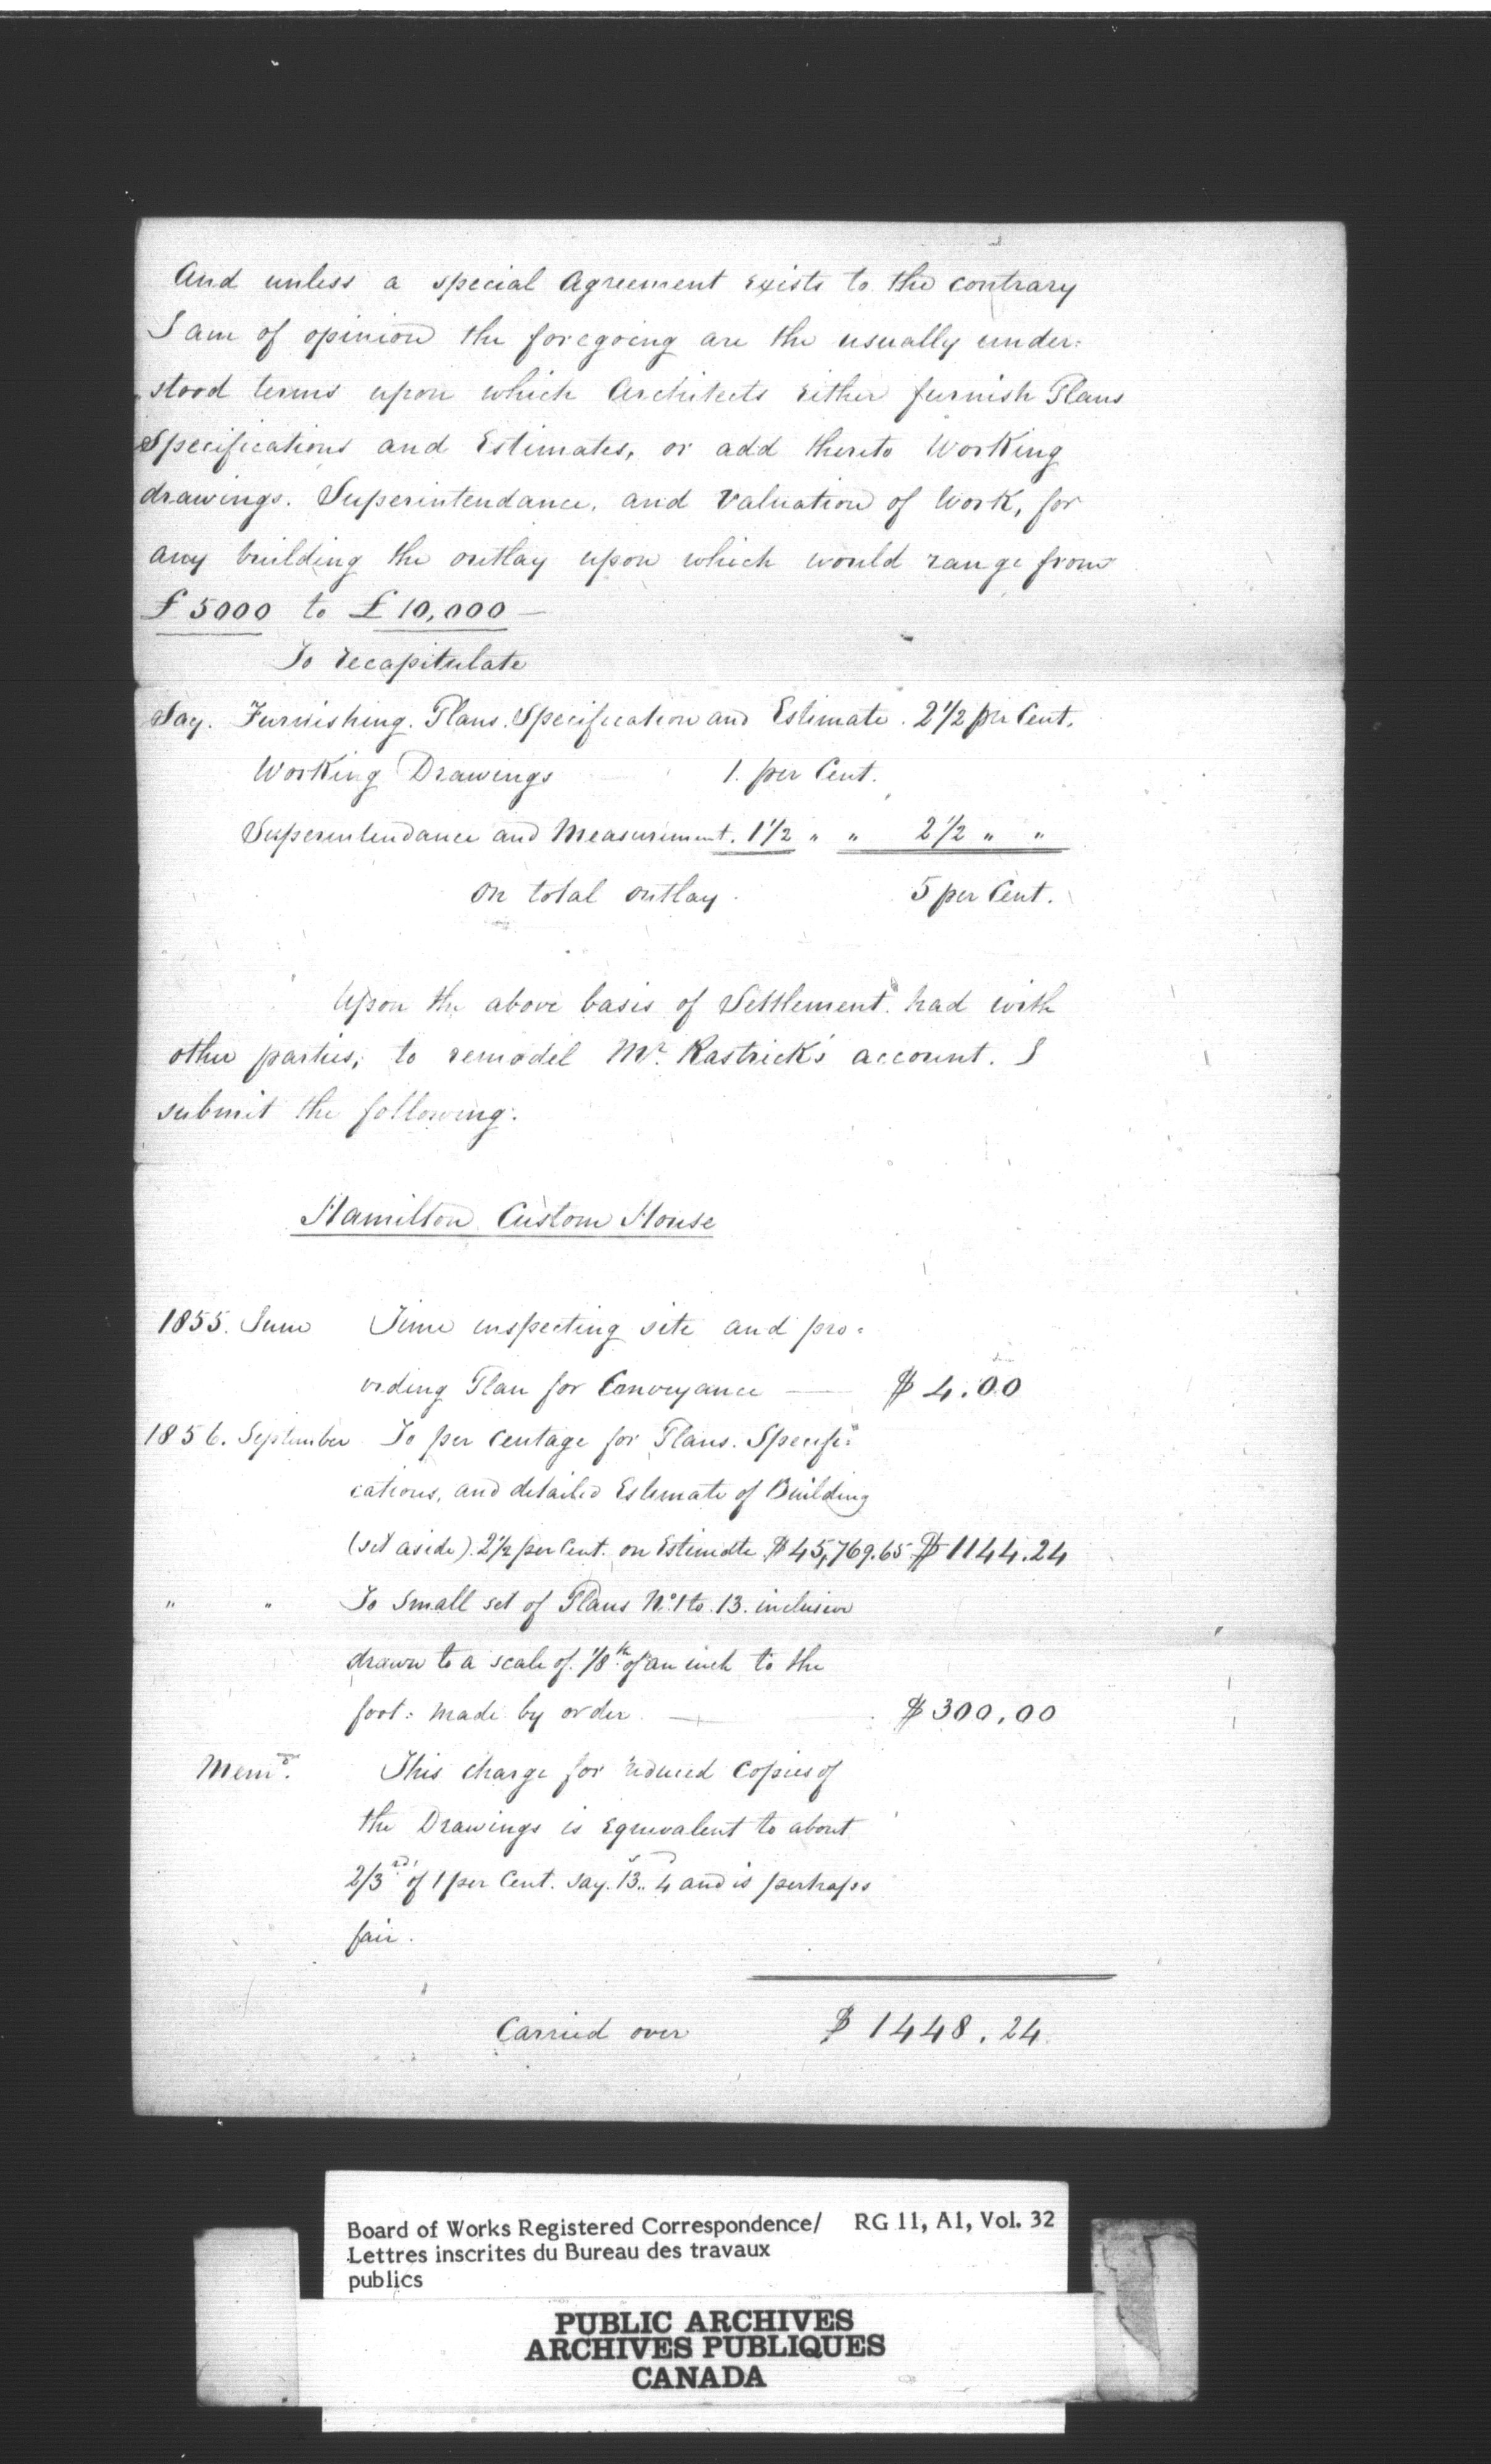 And unless a special Agreement exists to the contrary
I am of opinion the foregoing are the usually under:
stood terms upon which Architects either furnish Plans
Specifications and Estimates, or add thereto Working
drawings. Superintendance, and Valuation of Work, for
any building the outlay upon which would range from
£5000 to £10,000 —
To recapitulate
Say. Furnishing. Plans. Specification and Estimate. 2 1/2 per Cent.
Working Drawings 1. per Cent.
Superintendance and Measurement. 1 1/2 " " 2 1/2 " "
on total outlay. 5 per Cent.
Upon the above basis of Settlement had with
other parties, to remodel Mr. Rastrick's account. I
submit the following:
Hamilton Custom House
1855. June Time inspecting site and pro:
viding Plan for Conveyance — $ 4.00
1856. September To per centage for Plans. Specifi:
cations, and detailed Estimate of Building
(set aside). 2 1/2 per Cent. on Estimate $45,769.65 $1144.24
" " To Small set of Plans No. 1 to. 13. inclusive
drawn to a scale of. 1/8th of an inch to the
foot: made by order. — $300,00
Memo. This charge for reduced Copies of
the Drawings is equivalent to about
2/3rd of 1 per Cent. Say. 13s.. 4d and is perhaps
fair.
Carried over $ 1448.24.
Board of Works Registered Correspondence/ RG 11, A1, Vol. 32
Lettres inscrites du Bureau des travaux
publics
PUBLIC ARCHIVES
ARCHIVES PUBLIQUES
CANADA